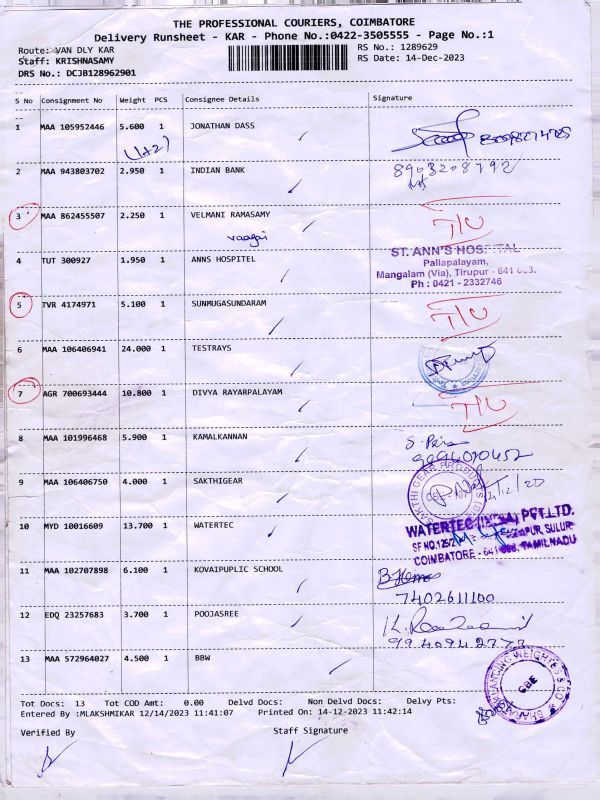 THE PROFESSIONAL COURIERS, COIMBATORE
Delivery Runsheet - KAR - Phone No.:0422-3505555 - Page No.:1
Route: VAN DLY KAR
RS No.: 1289629
Staff: KRISHNASAMY
RS Date: 14-Dec-2023
DRS No.: DCJB128962901
S No Consignment No Weight PCS Consignee Details Signature
1 MAA 105952446 5.600 1 JONATHAN DASS
(1+2)
2 MAA 943803702 2.950 1 INDIAN BANK 8903208792
3 MAA 862455507 2.250 1 VELMANI RAMASAMY T/U
vaagai
4 TUT 300927 1.950 1 ANNS HOSPITEL
ST. ANN'S HOSPITAL
Pallapalayam,
Mangalam (Via), Tirupur - 641 663.
Ph : 0421 - 2332746
5 TVR 4174971 5.100 1 SUNMUGASUNDARAM T/U
6 MAA 106406941 24.000 1 TESTRAYS
7 AGR 700693444 10.800 1 DIVYA RAYARPALAYAM T/U
8 MAA 101996468 5.900 1 KAMALKANNAN
9994020452
9 MAA 106406750 4.000 1 SAKTHIGEAR
SAKTHI GEAR PRODUCTS
10 MYD 10016609 13.700 1 WATERTEC
WATERTEC (INDIA) PVT.LTD.
SULUR
COIMBATORE - 641 TAMILNADU
11 MAA 102707898 6.100 1 KOVAIPUPLIC SCHOOL
7402611100
12 EDQ 23257683 3.700 1 POOJASREE
13 MAA 572964027 4.500 1 BBW
CBE
Tot Docs: 13 Tot COD Amt: 0.00 Delvd Docs: Non Delvd Docs: Delvy Pts:
Entered By :MLAKSHMIKAR 12/14/2023 11:41:07 Printed On: 14-12-2023 11:42:14
Verified By Staff Signature